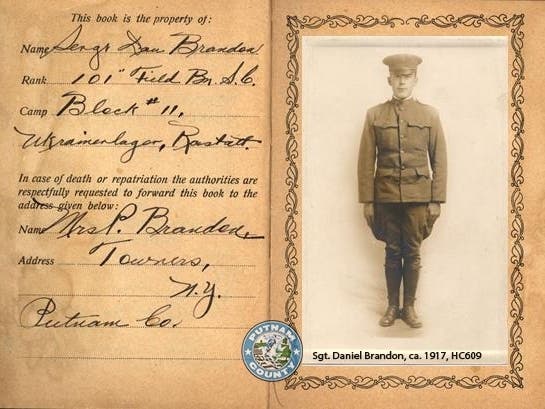 This book is the property of:
Name Sengt Dan Brandon
Rank 101" Field Bn. S.C.
Camp Block #11,
Ukrainenlager, Rastatt.
In case of death or repatriation the authorities are
respectfully requested to forward this book to the
address given below:
Name Mrs P. Brandon,
Address Towners,
N.Y.
Putnam Co.
PUTNAM
COUNTY
Sgt. Daniel Brandon, ca. 1917, HC609